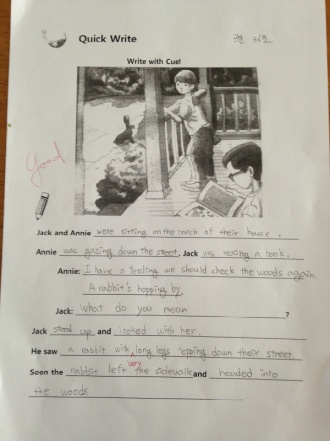 Quick Write
Write with Cue!
Good
Jack and Annie were sitting on the porch of their house.
Annie was gazing down the street. Jack was reading a book.
Annie: I have a feeling we should check the woods again.
A rabbit's hopping by.
Jack: what do you mean ?
Jack stood up and looked with her.
He saw a rabbit with very long legs hopping down their street.
Soon the rabbit left the sidewalk and headed into
the woods